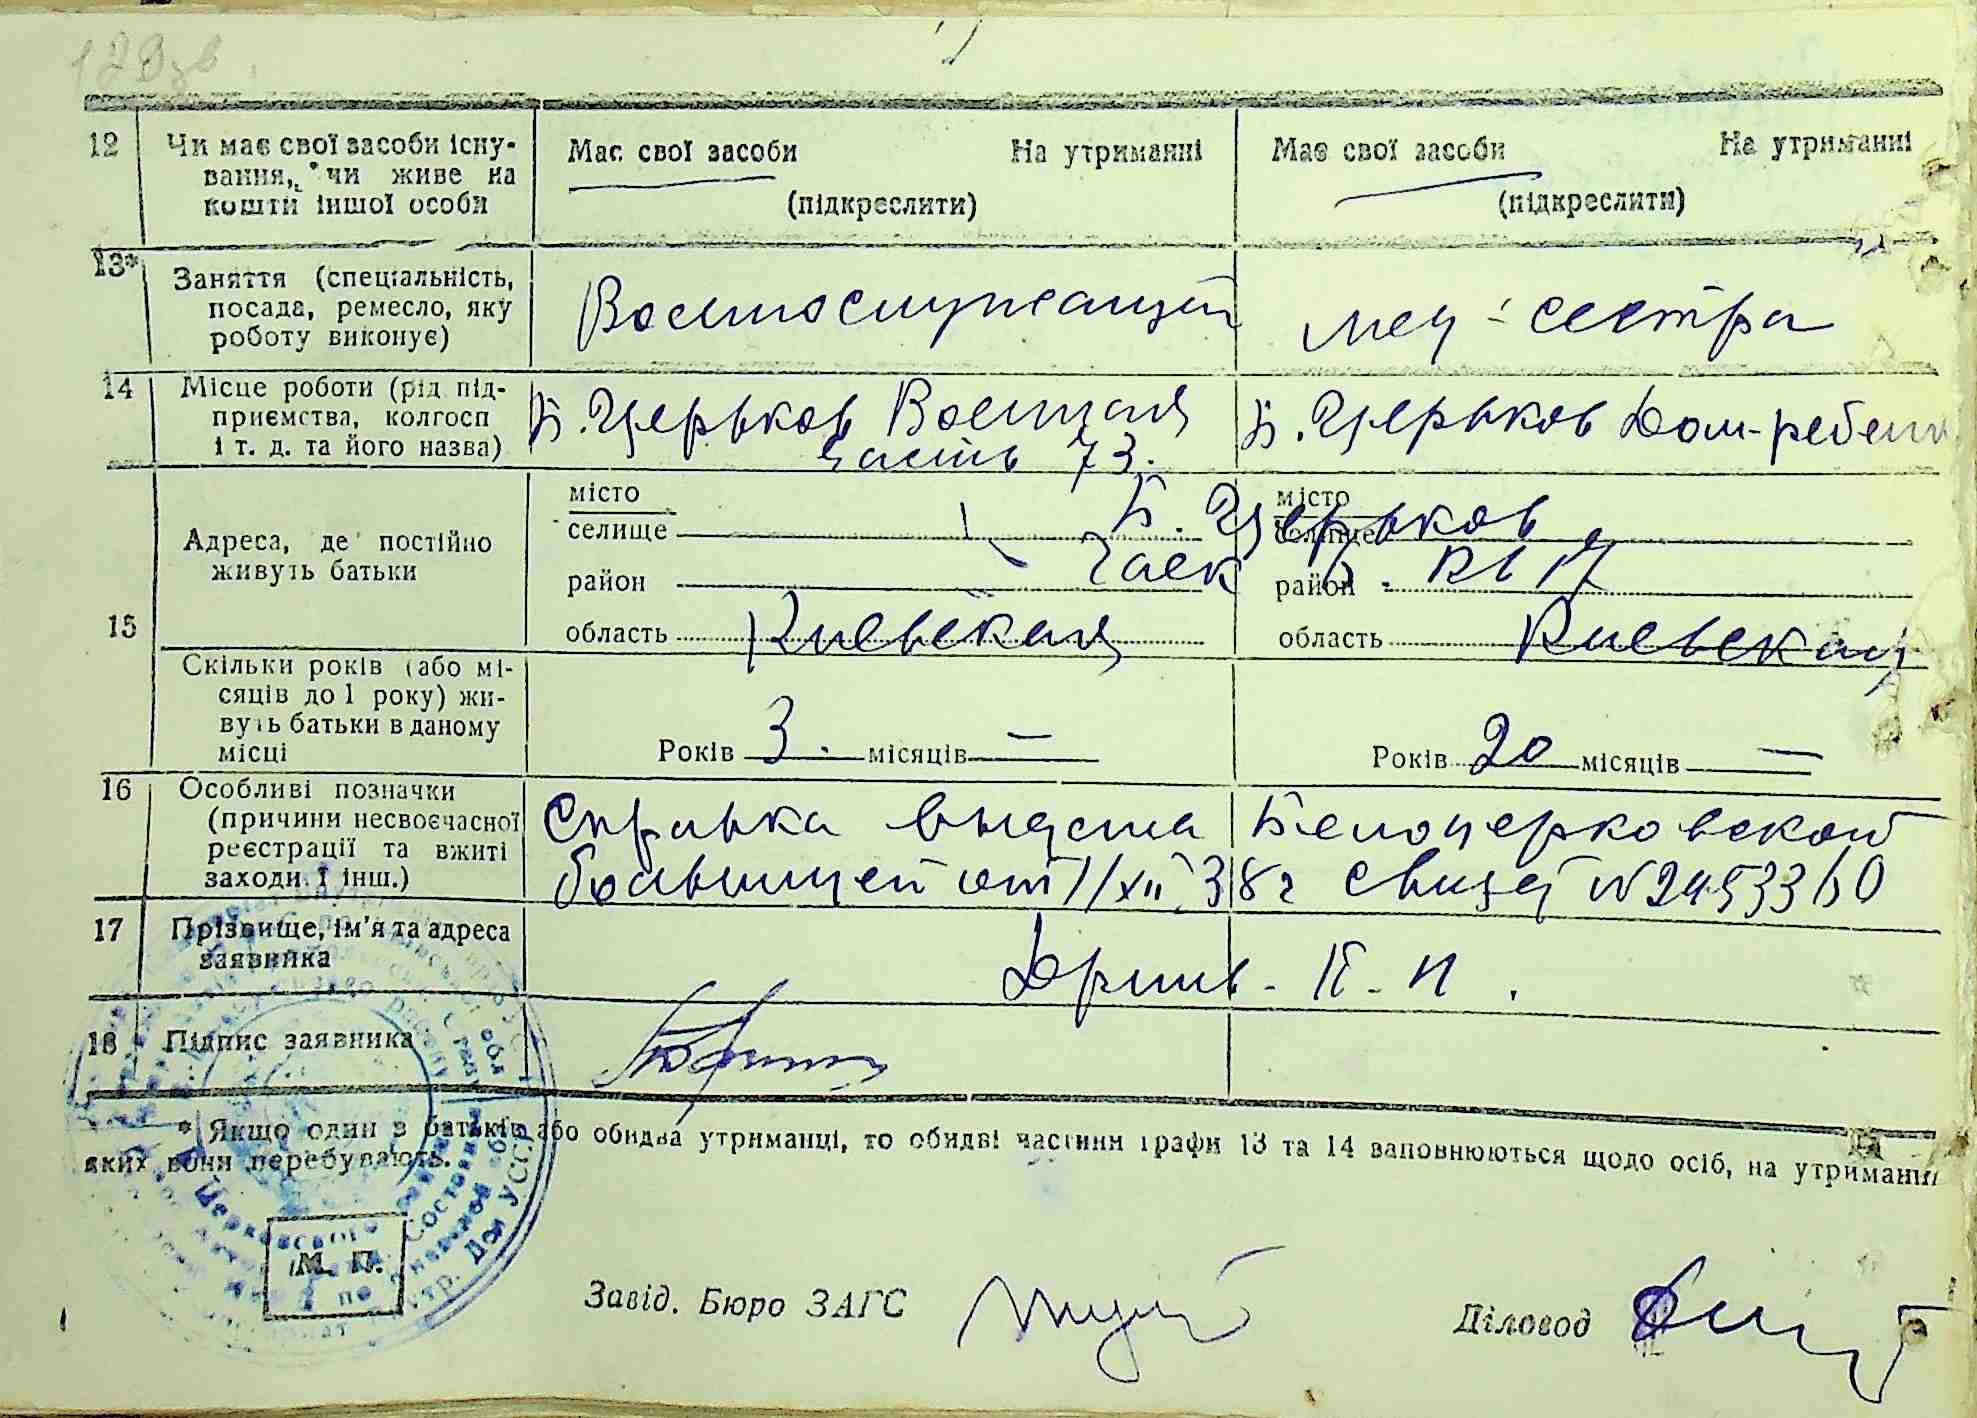 12 Чи має свої засоби існу-
вання, чи живе на
кошти іншої особи
Має свої засоби На утриманні
(підкреслити)
Має свої засоби На утриманні
(підкреслити)
13* Заняття (спеціальність,
посада, ремесло, яку
роботу виконує)
Военнослужащий
мед-сестра
14 Місце роботи (рід під-
приємства, колгосп
і т. д. та його назва)
Б. Церьков Военная
часть 73.
Б. Церьков Дом-ребенк
15 Адреса, де постійно
живуть батьки
місто
селище
район
область Киевская
місто
селище
район
область Киевская
Б. Церьков
Скільки років (або мі-
сяців до 1 року) жи-
вуть батьки в даному
місці
Років 3. місяців —
Років 20 місяців —
16 Особливі позначки
(причини несвоєчасної
реєстрації та вжиті
заходи і інш.)
Справка выдана Белоцерковской
больницей от
17 Прізвище, ім'я та адреса
заявника
18 Підпис заявника
* Якщо один з батьків або обидва утриманці, то обидві частини графи 13 та 14 заповнюються щодо осіб, на утриманні
яких вони перебувають.
М. П.
Завід. Бюро ЗАГС
Діловод